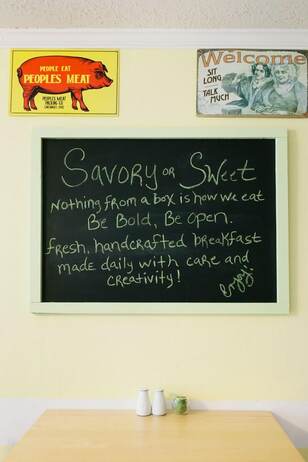 PEOPLE EAT
PEOPLES MEAT
PEOPLES MEAT
PACKING CO.
CINCINNATI, OHIO
Welcome
SIT
LONG
TALK
MUCH
SAVORY OR SWEET
NOTHING FROM A BOX IS HOW WE EAT
BE BOLD, BE OPEN.
FRESH, HANDCRAFTED BREAKFAST
MADE DAILY WITH CARE AND
CREATIVITY!
Enjoy!